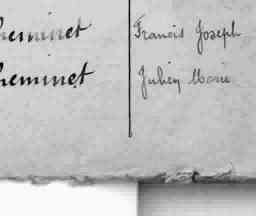 heminet Francis Joseph
heminet Julien Marie